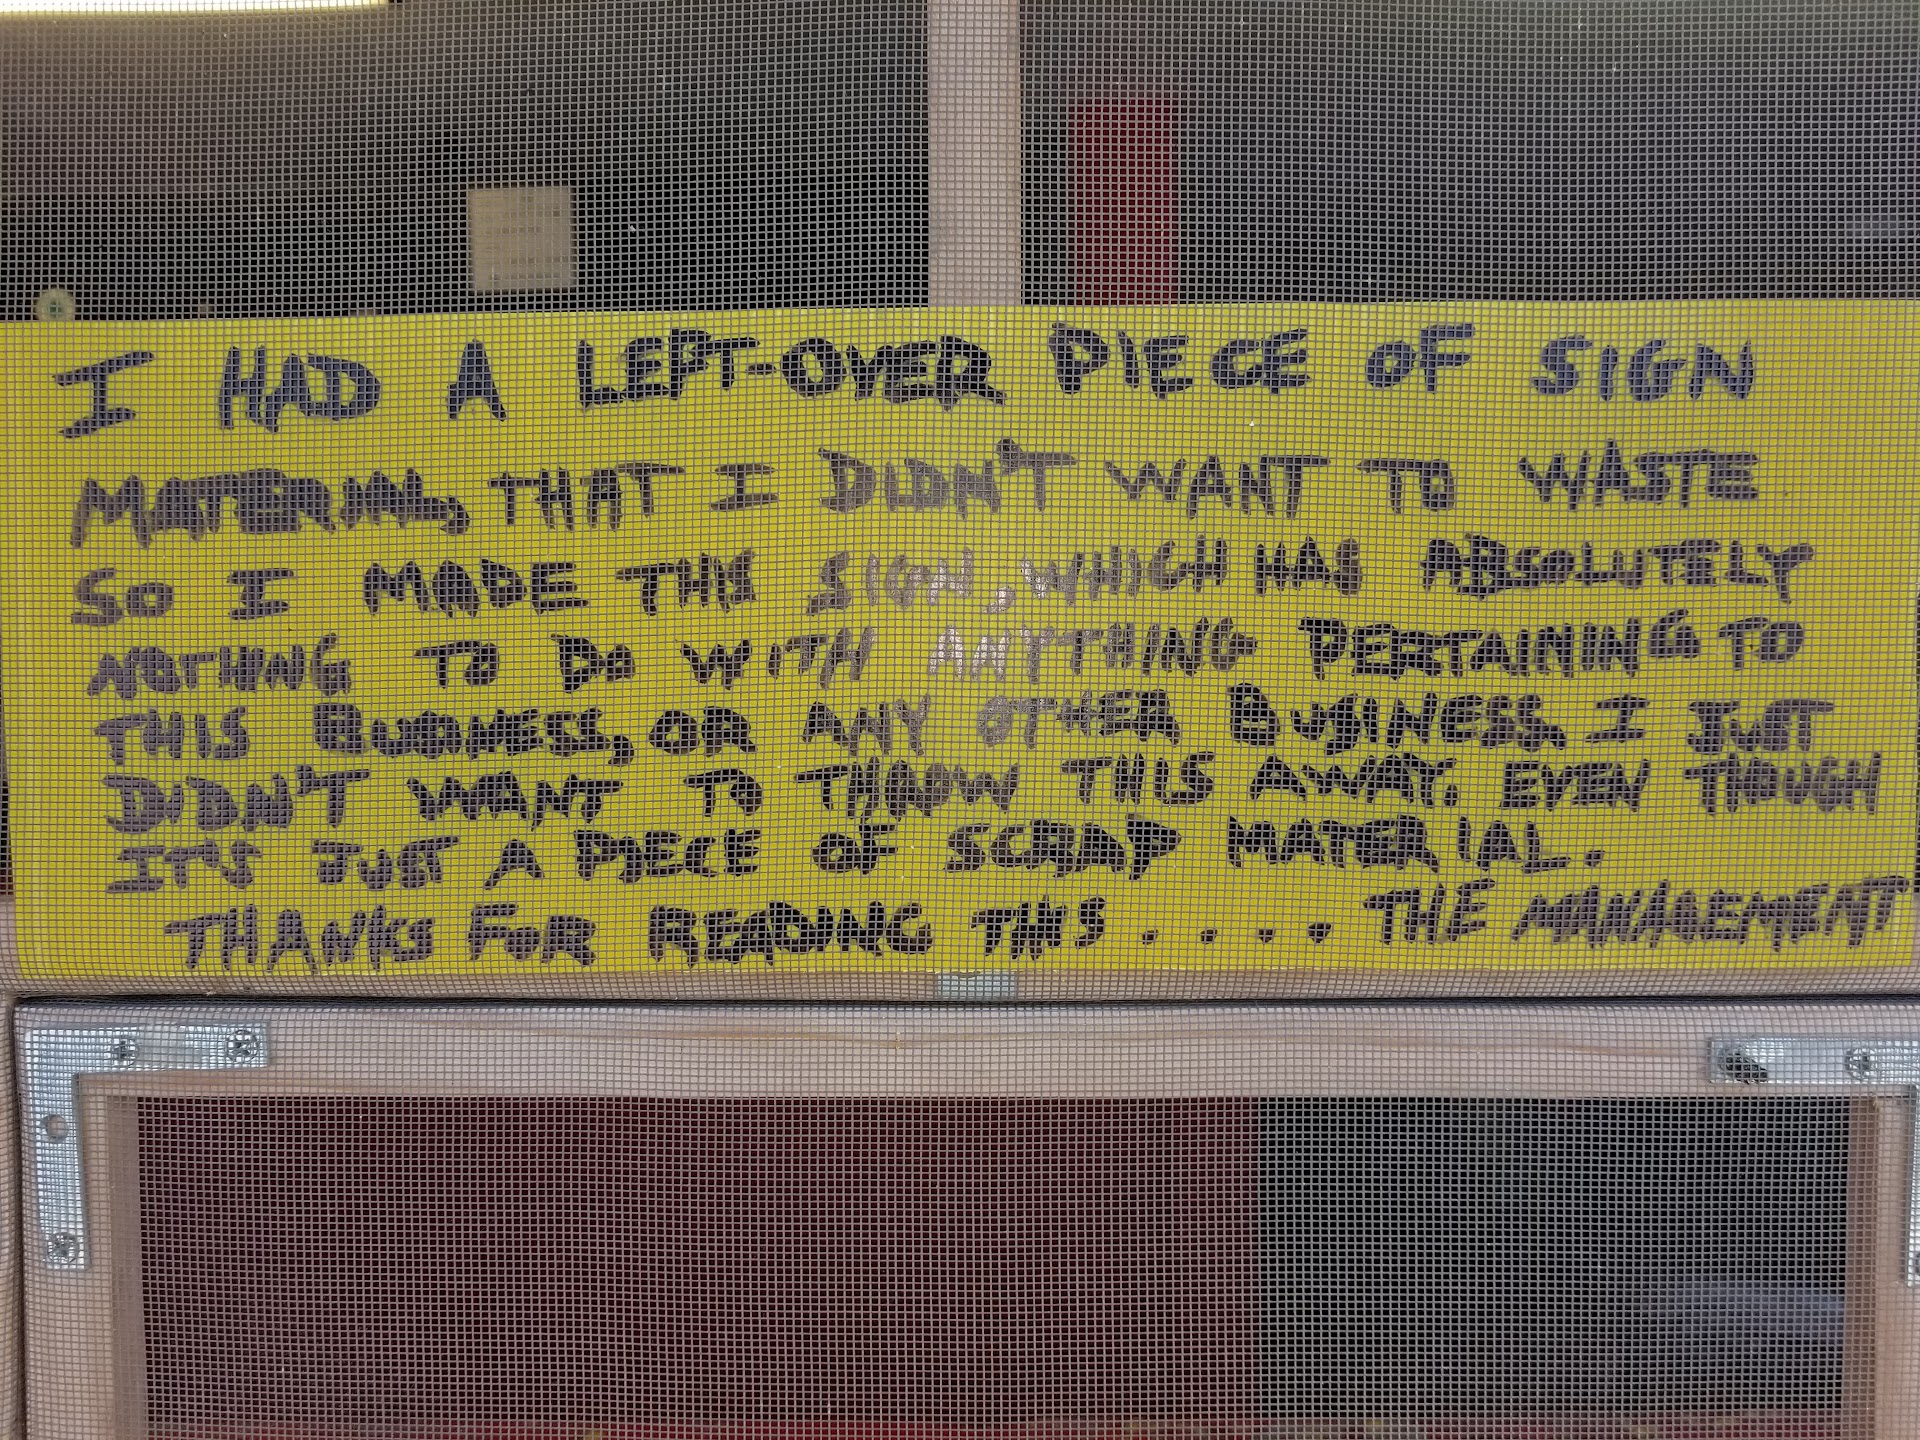 I HAD A LEFT-OVER PIECE OF SIGN
MATERIAL, THAT I DIDN'T WANT TO WASTE
SO I MADE THIS SIGN, WHICH HAS ABSOLUTELY
NOTHING TO DO WITH ANYTHING PERTAINING TO
THIS BUSINESS, OR ANY OTHER BUSINESS, I JUST
DIDN'T WANT TO THROW THIS AWAY. EVEN THOUGH
IT'S JUST A PIECE OF SCRAP MATERIAL.
THANKS FOR READING THIS.... THE MANAGEMENT